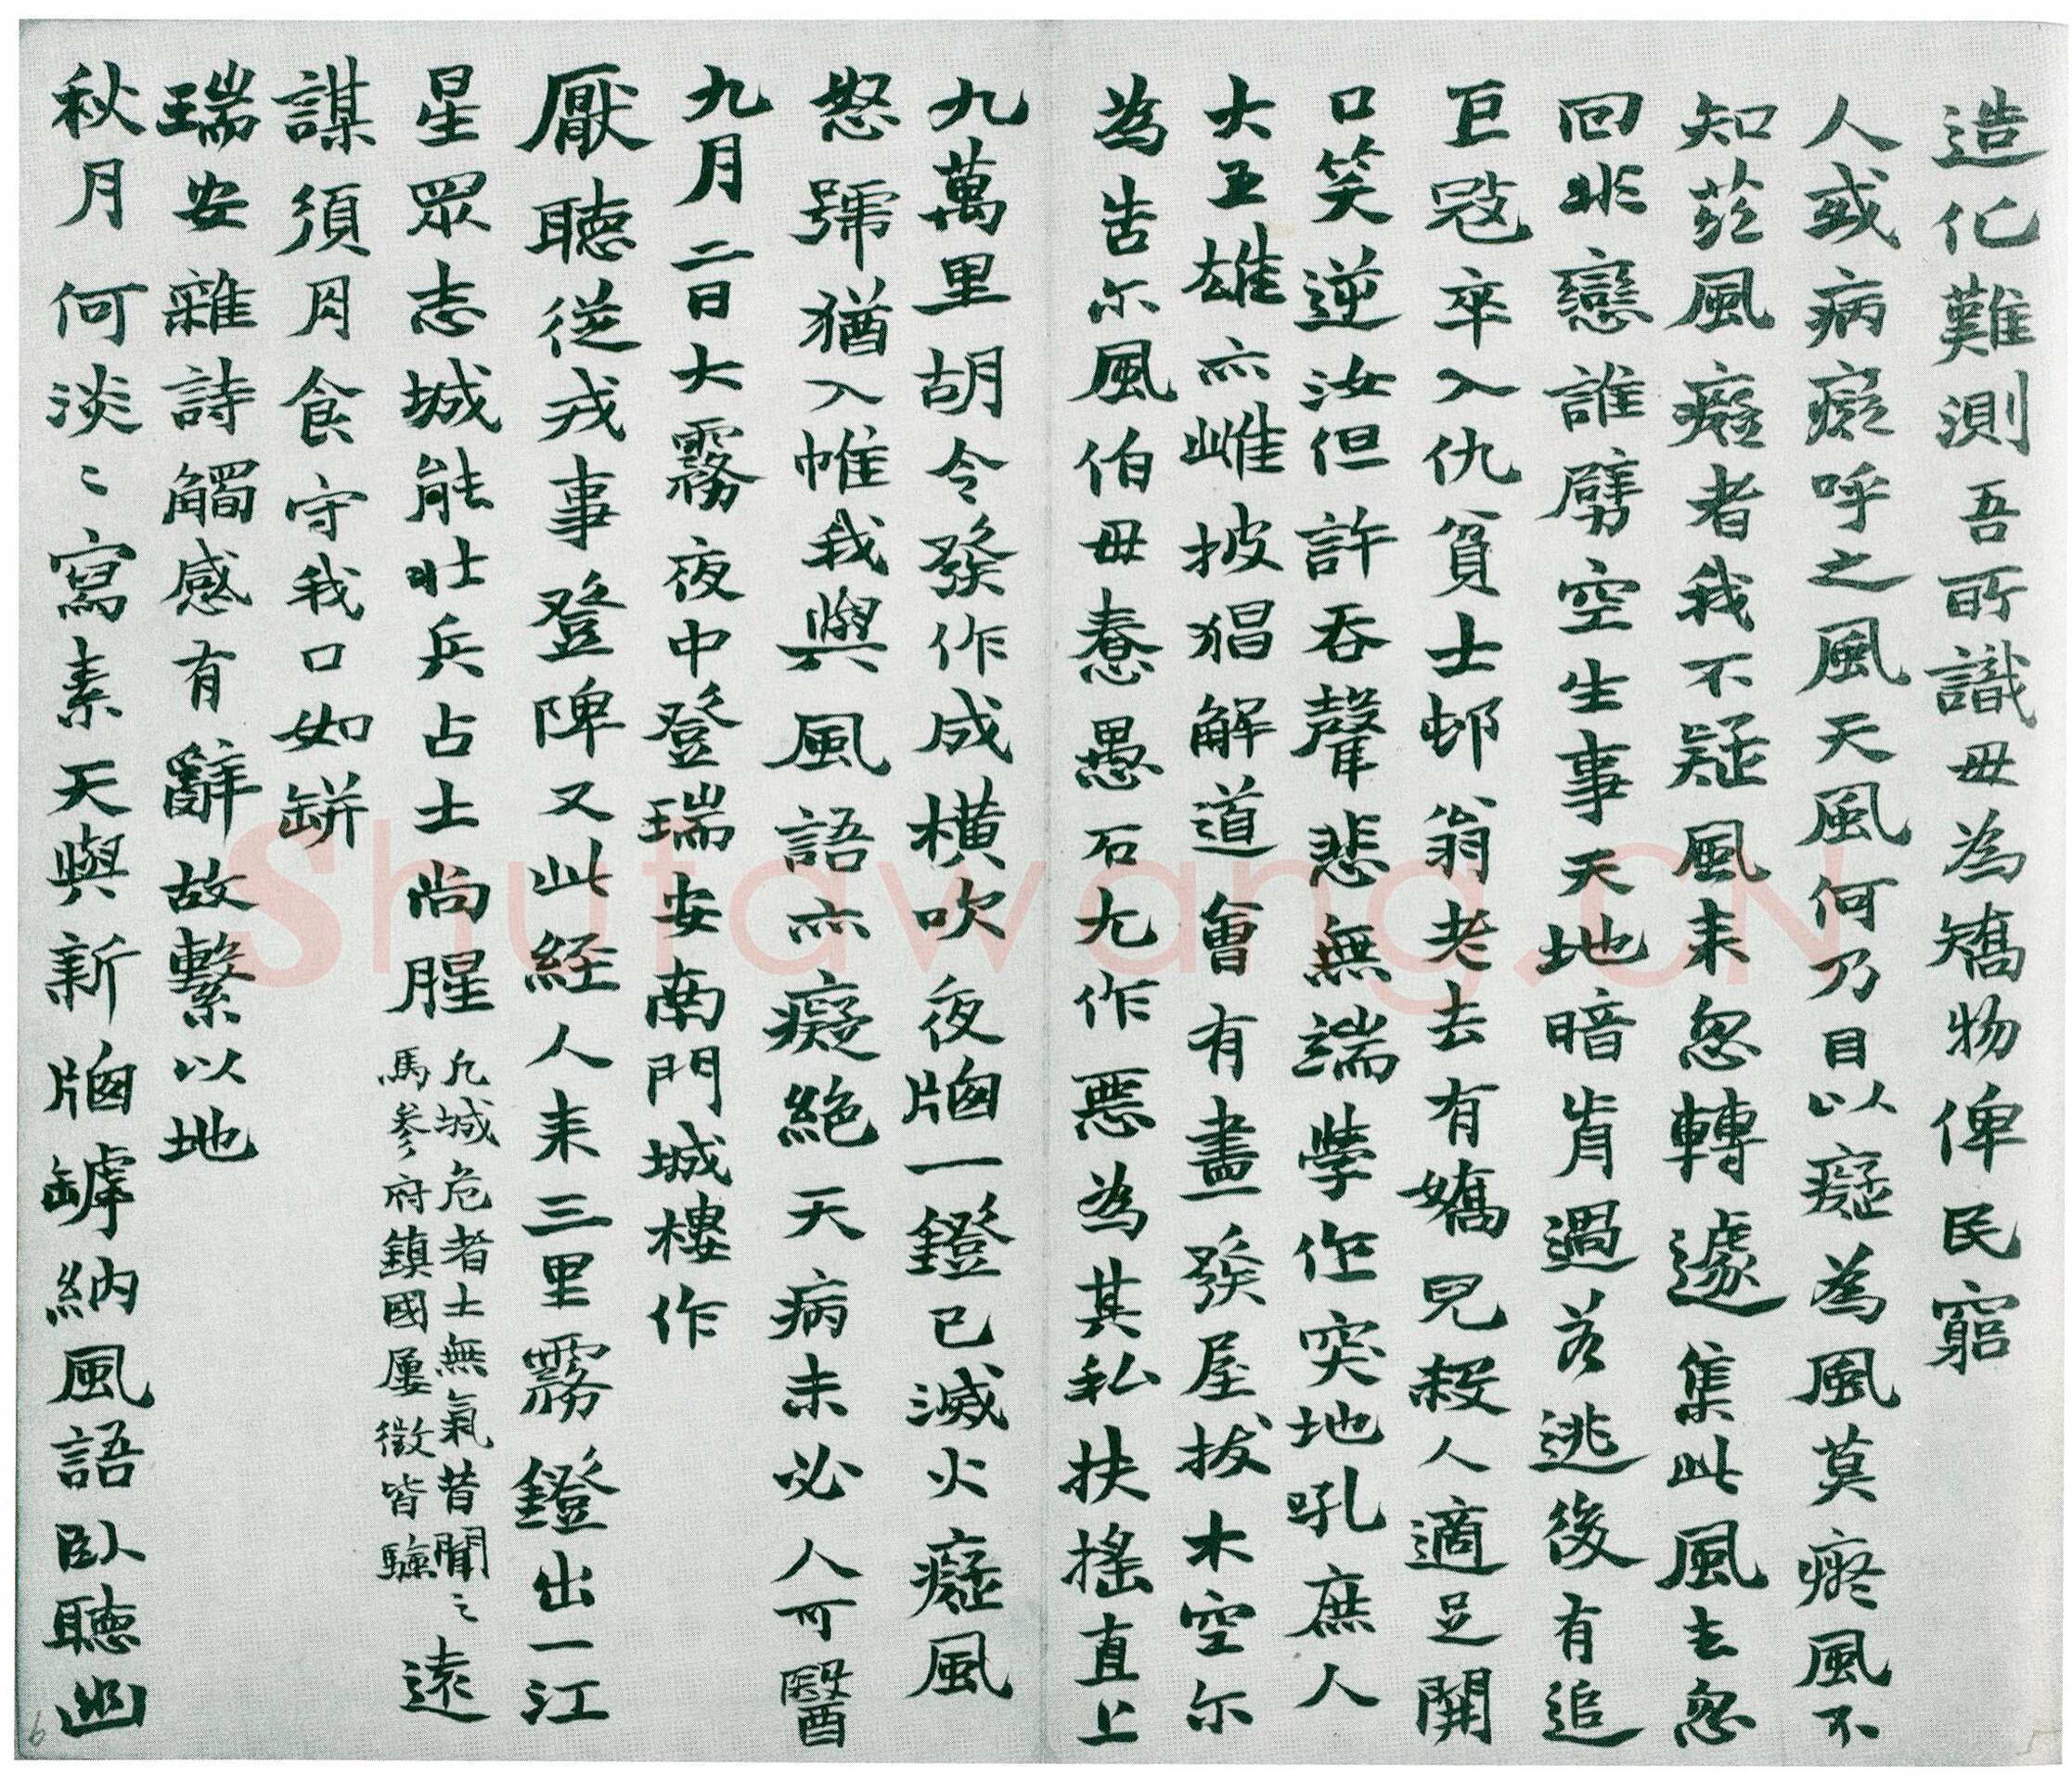 造化難測吾所識毋為矯物俾民窮
人或病癡呼之風天風何乃目以癡為風莫療風不
知茲風癡者我不疑風来忽轉遽集此風去忽
回非戀誰劈空生事天地暗肯過若逃後有追
巨寇卒入仇貧士邨翁老去有嬌兒殺人適足開
口笑逆汝但許吞聲悲無端學作突地吼庶人
大王雄亦雌披猖解道會有盡發屋拔木空尔
為告尔風伯毋惷愚石尤作惡為其私扶搖直上
九萬里胡令發作成橫吹夜牕一鐙已滅火癡風
怒號猶入帷我與風語亦癡絕天病未必人可醫
九月二日大霧夜中登瑞安南門城樓作
厭聽從戎事登陴又此經人来三里霧鐙出一江
星眾志城能壯兵占士尚腥
凡城危者士無氣昔聞之
馬參府鎮國屢徵皆驗
遠
謀須肉食守我口如缾
瑞安雜詩觸感有辭故繫以地
秋月何淡〻寫素天與新牕罅納風語臥聽幽
Shufawang.CN
5
6